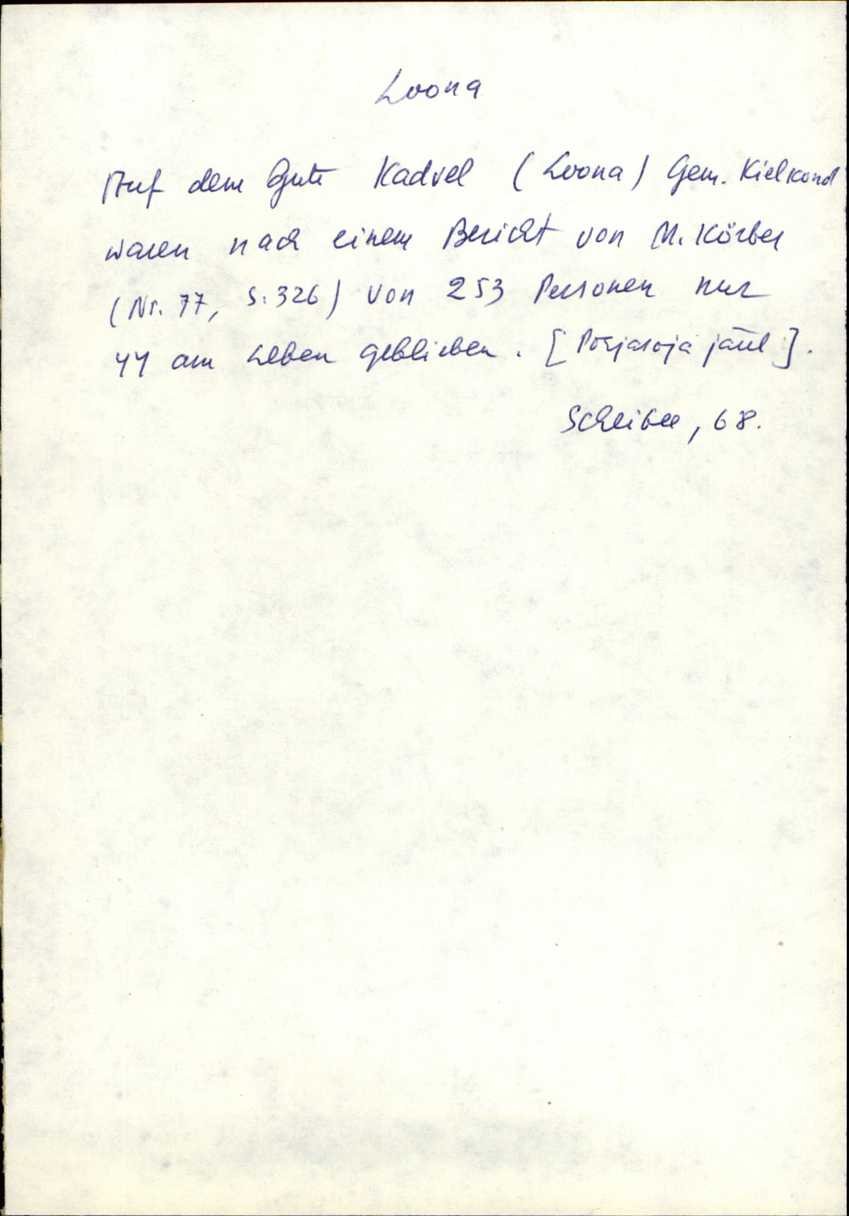 Loona
Auf dem Gute Kadvel (Loona) Gem. Kielkond
waren nach einem Bericht von M. Körber
(Nr. 77, S. 326) von 253 Personen nur
44 am Leben geblieben. [Põhjasõja järel].
Scheibe, 68.